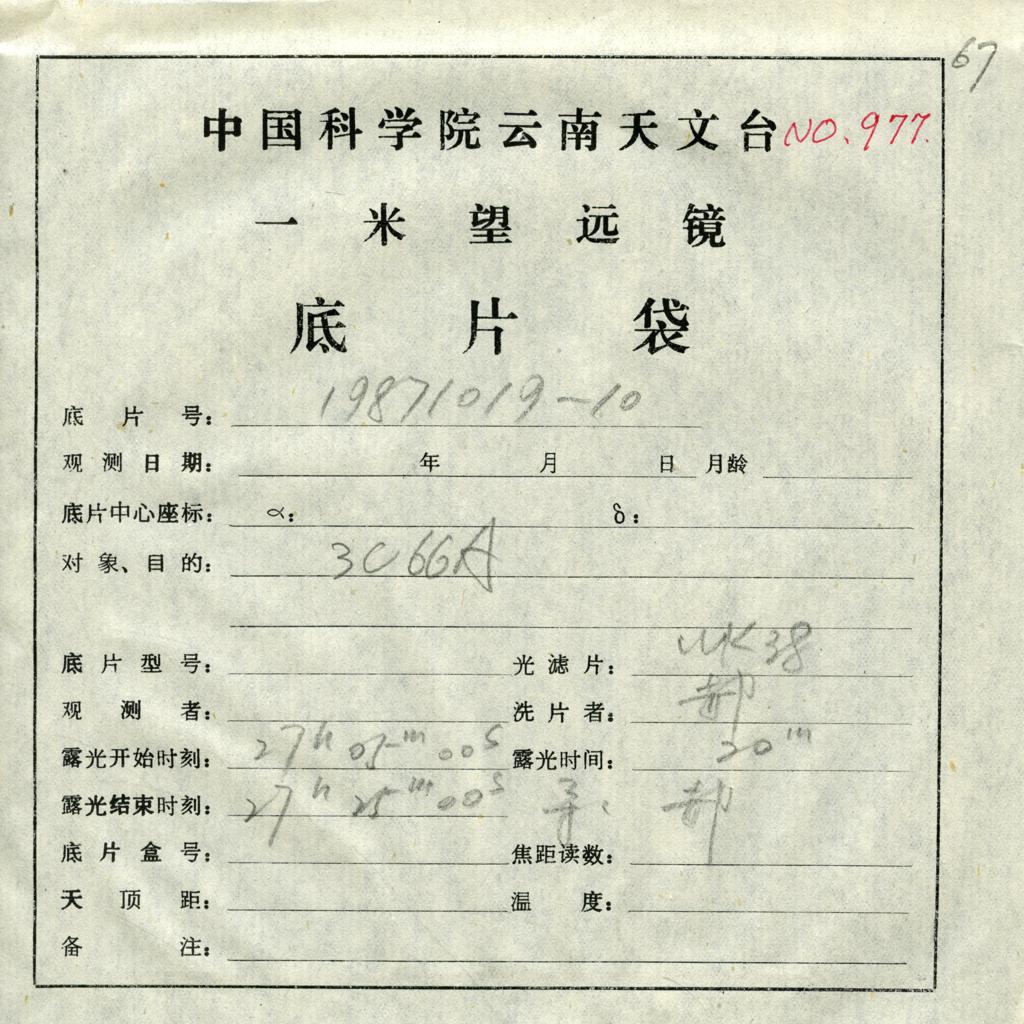 67
中国科学院云南天文台 NO.977.
一米望远镜
底片袋
底片号: 19871019-10
观测日期: 年 月 日 月龄
底片中心座标: α: δ:
对象、目的: 3C66A
底片型号: 光滤片: 38
观测者: 洗片者: 郝
露光开始时刻: 27h 05m 00s 露光时间: 20m
露光结束时刻: 27h 25m 00s 导: 郝
底片盒号: 焦距读数:
天顶距: 温度:
备注: